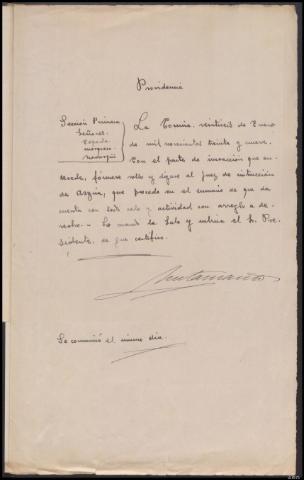 Providencia
Sección Primera
Señores.
La Coruña, veintiseis de Enero
de mil novecientos treinta y nueve.
Con el parte de incoacción que an-
tecede, fórmese rollo y dígase al Juez de instrucción
de que proceda en el sumario de que da
cuenta con todo celo y actividad con arreglo a de-
recho.- Lo mandó la Sala y rubrica el S. Pre-
sidente, de que certifico.
Se comunicó el mismo día.